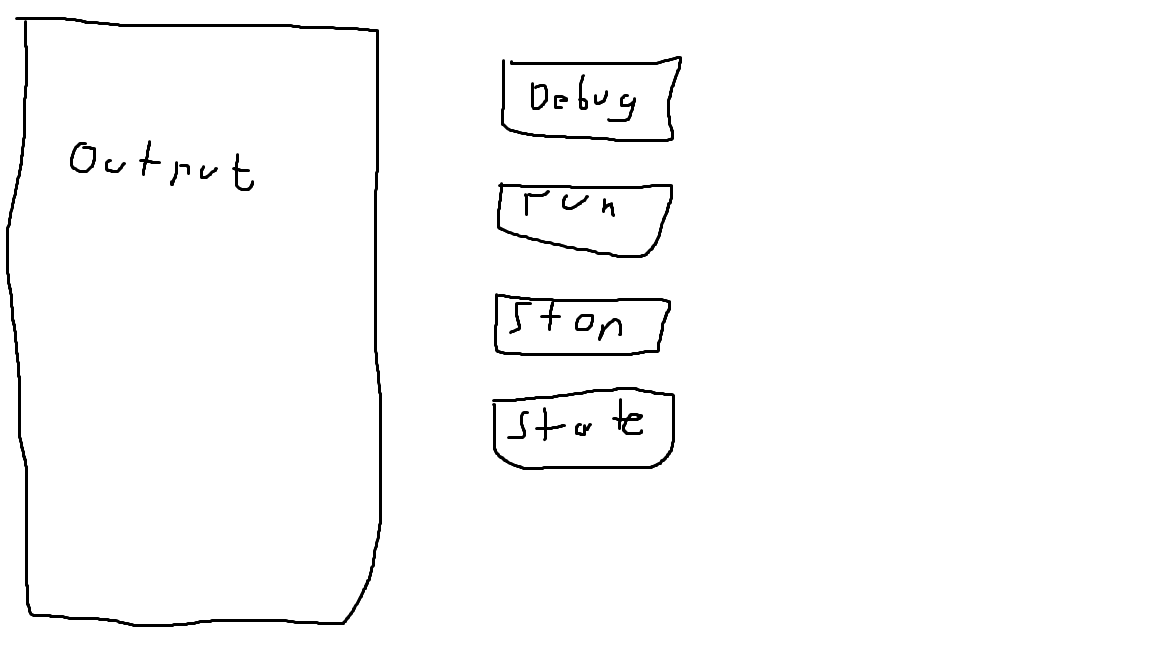 Output
Debug
run
Stop
State